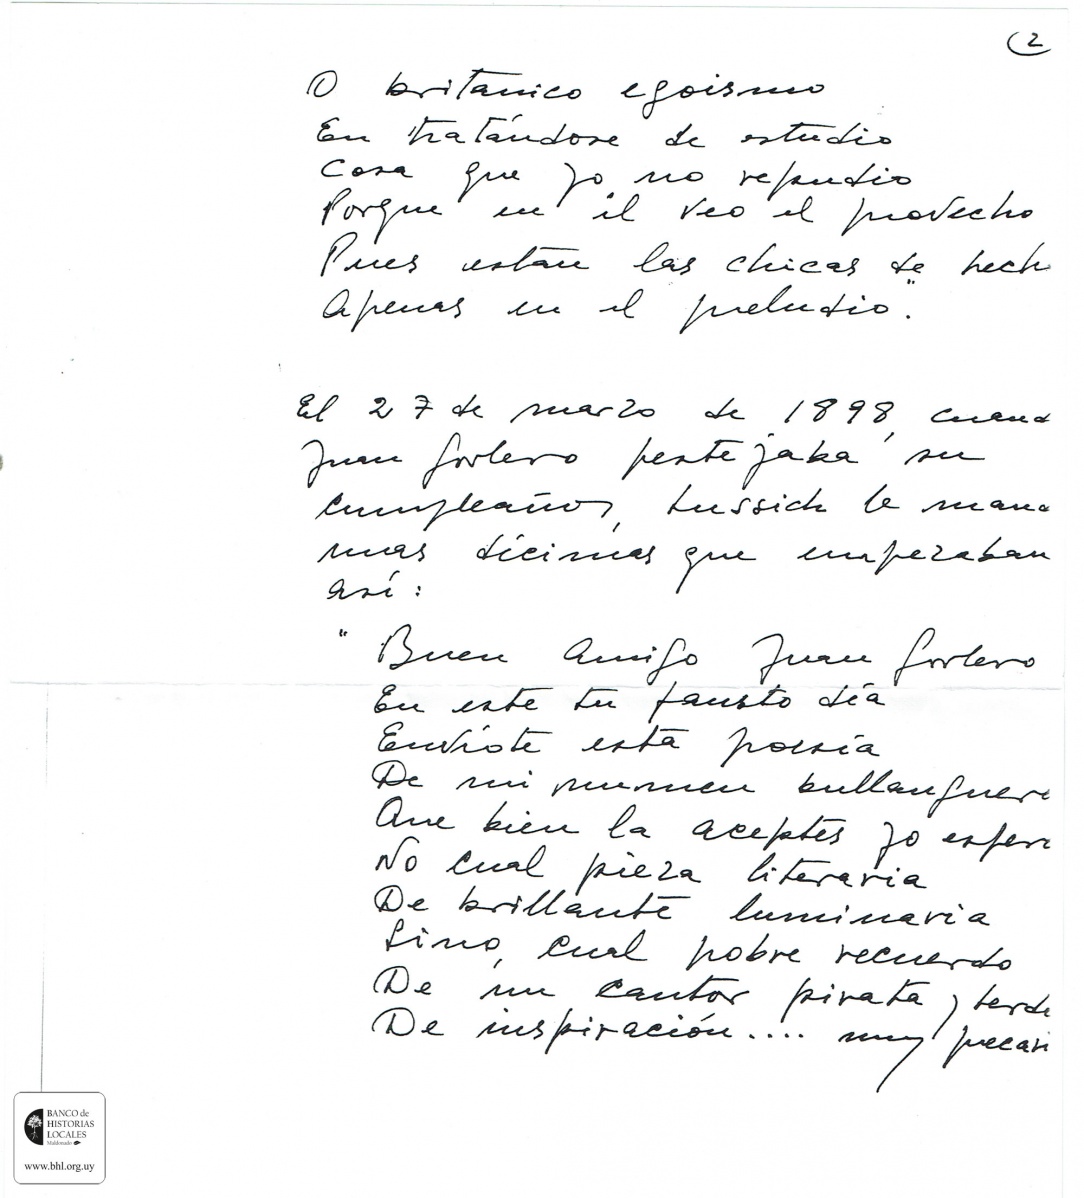 2
O britanico egoismo
En tratándose de estudio
Cosa que yo no repudio
Porque en el veo el provecho
Pues están las chicas de hech
Apenas en el preludio".
El 27 de marzo de 1898, cuand
Juan Gorlero festejaba su
cumpleaños, Lussich le mand
unas décimas que empezaban
así:
" Buen Amigo Juan Gorlero
En este tu fausto día
Envíote esta poesía
De mi numen bullanguer
Que bien la aceptes yo esper
No cual pieza literaria
De brillante luminaria
Sino, cual pobre recuerdo
De un cantor pirata, y lerd
De inspiración.... muy precari
BANCO de
HISTORIAS
LOCALES
Maldonado
www.bhl.org.uy